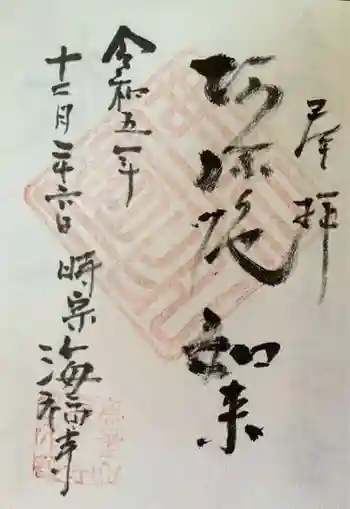 奉拝
阿弥陀如来
令和五年
十二月二十六日
時宗 海福寺